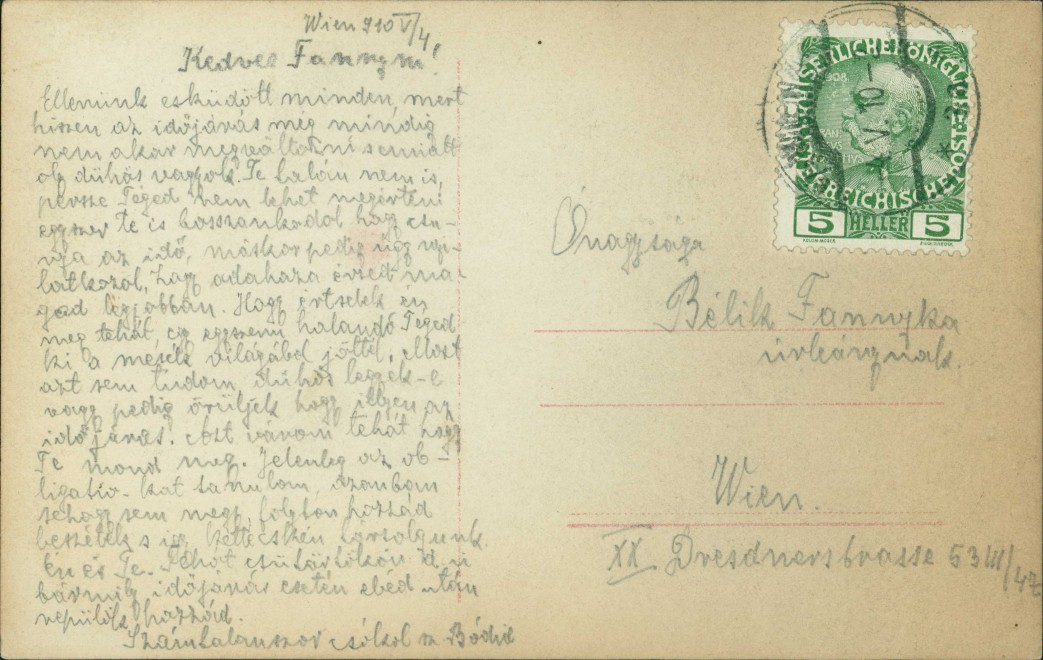 Wien 910 V/4.
Kedves Fannym!
Ellenünk esküdött minden, mert
hiszen az időjárás még mindig
nem akar megváltozni s emiatt
oly dühös vagyok. Te talán nem is,
persze Téged nem lehet megérteni
egyszer te is bosszankodol hogy csu-
nya az idő, máskor pedig úgy nyi-
latkozol, hogy odahaza érzed ma-
gad legjobban. Hogy értselek én
meg tehát, egy egyszerű halandó Téged
ki a mesék világából jöttél. Most
azt sem tudom, dühös legyek-e
vagy pedig örüljek hogy ilyen az
időjárás. Azt várom tehát hogy
Te mond meg. Jelenleg az ob-
ligatio-kat tanulom, azonban
sehogy sem megy, folyton hozzád
beszélek s így kettecskén társalgunk
Én és Te. Tehát csütörtökön d. u
bármily időjárás esetén ebéd után
repülök hozzád.
Számtalanszor csókol
Őnagysága
Bélik Fannyka
úrleánynak.
Wien.
XX Dresdnerstrasse 53 III/47
KAISERLICHE KÖNIGLICHE ÖSTERREICHISCHE POST
1908
5 HELLER 5
V. 10